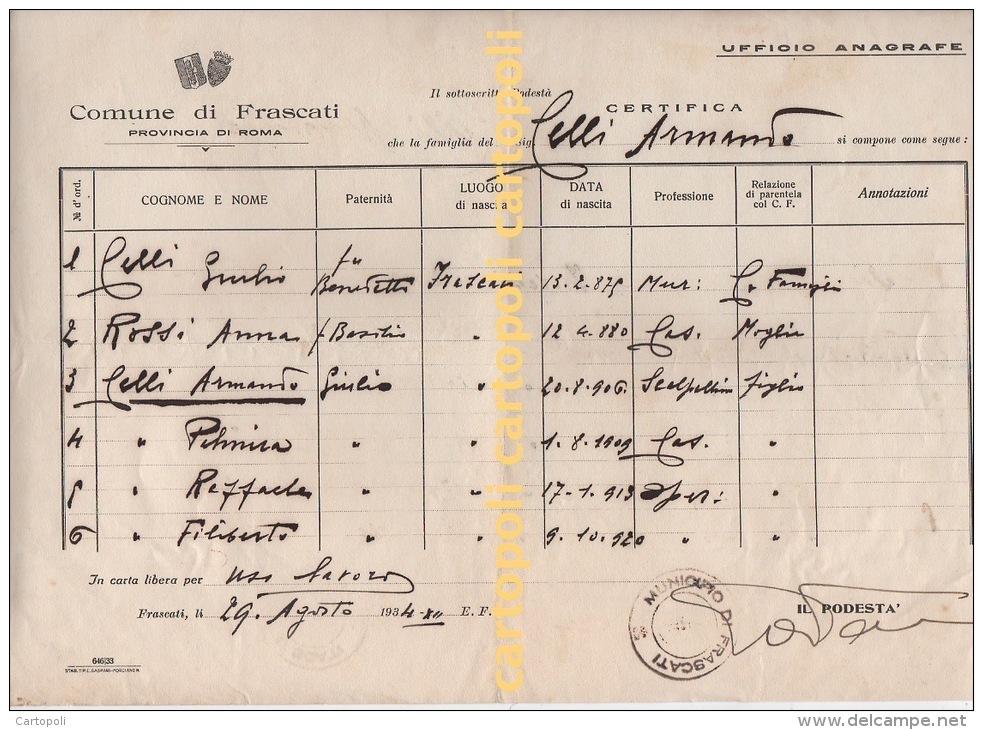 UFFICIO ANAGRAFE
Comune di Frascati
PROVINCIA DI ROMA
Il sottoscritto Podestà
CERTIFICA
che la famiglia del Sig. Celli Armando si compone come segue:
N. d'ord. COGNOME E NOME Paternità LUOGO di nascita DATA di nascita Professione Relazione di parentela col C. F. Annotazioni
1 Celli Giulio fu Benedetto Frascati 13.2.875 Mur: C. Famiglia
2 Rossi Anna f Basilio " 12 4.880 Cas. Moglie
3 Celli Armando Giulio " 20.8.906. Scalpellino Figlio
4 " " " 1.8.1909 Cas. "
5 " Raffaele " " 17-1.913 Oper: "
6 " Filiberto " " 9.10.920 " "
In carta libera per uso lavoro
Frascati, li 29 Agosto 1934-XII E. F.
IL PODESTA'
MUNICIPIO DI FRASCATI
646|33
cartopoli cartopoli cartopoli cartopoli
Cartopoli
http://www.delcampe.net